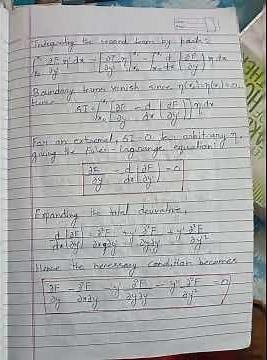 Integrating the second term by parts:
∫ ∂F/∂y' η' dx = [∂F/∂y' η] - ∫ d/dx (∂F/∂y') η dx
Boundary terms vanish since η(x₁)=η(x₂)=0.
Hence
δI = ∫ [∂F/∂y - d/dx (∂F/∂y')] η dx
For an extremal, δI=0 for arbitrary η,
giving the Euler-Lagrange equation:
∂F/∂y - d/dx (∂F/∂y') = 0
Expanding the total derivative,
d/dx (∂F/∂y') = ∂²F/∂x∂y' + y' ∂²F/∂y∂y' + y'' ∂²F/∂y'²
Hence the necessary condition becomes
∂F/∂y - ∂²F/∂x∂y' - y' ∂²F/∂y∂y' - y'' ∂²F/∂y'² = 0